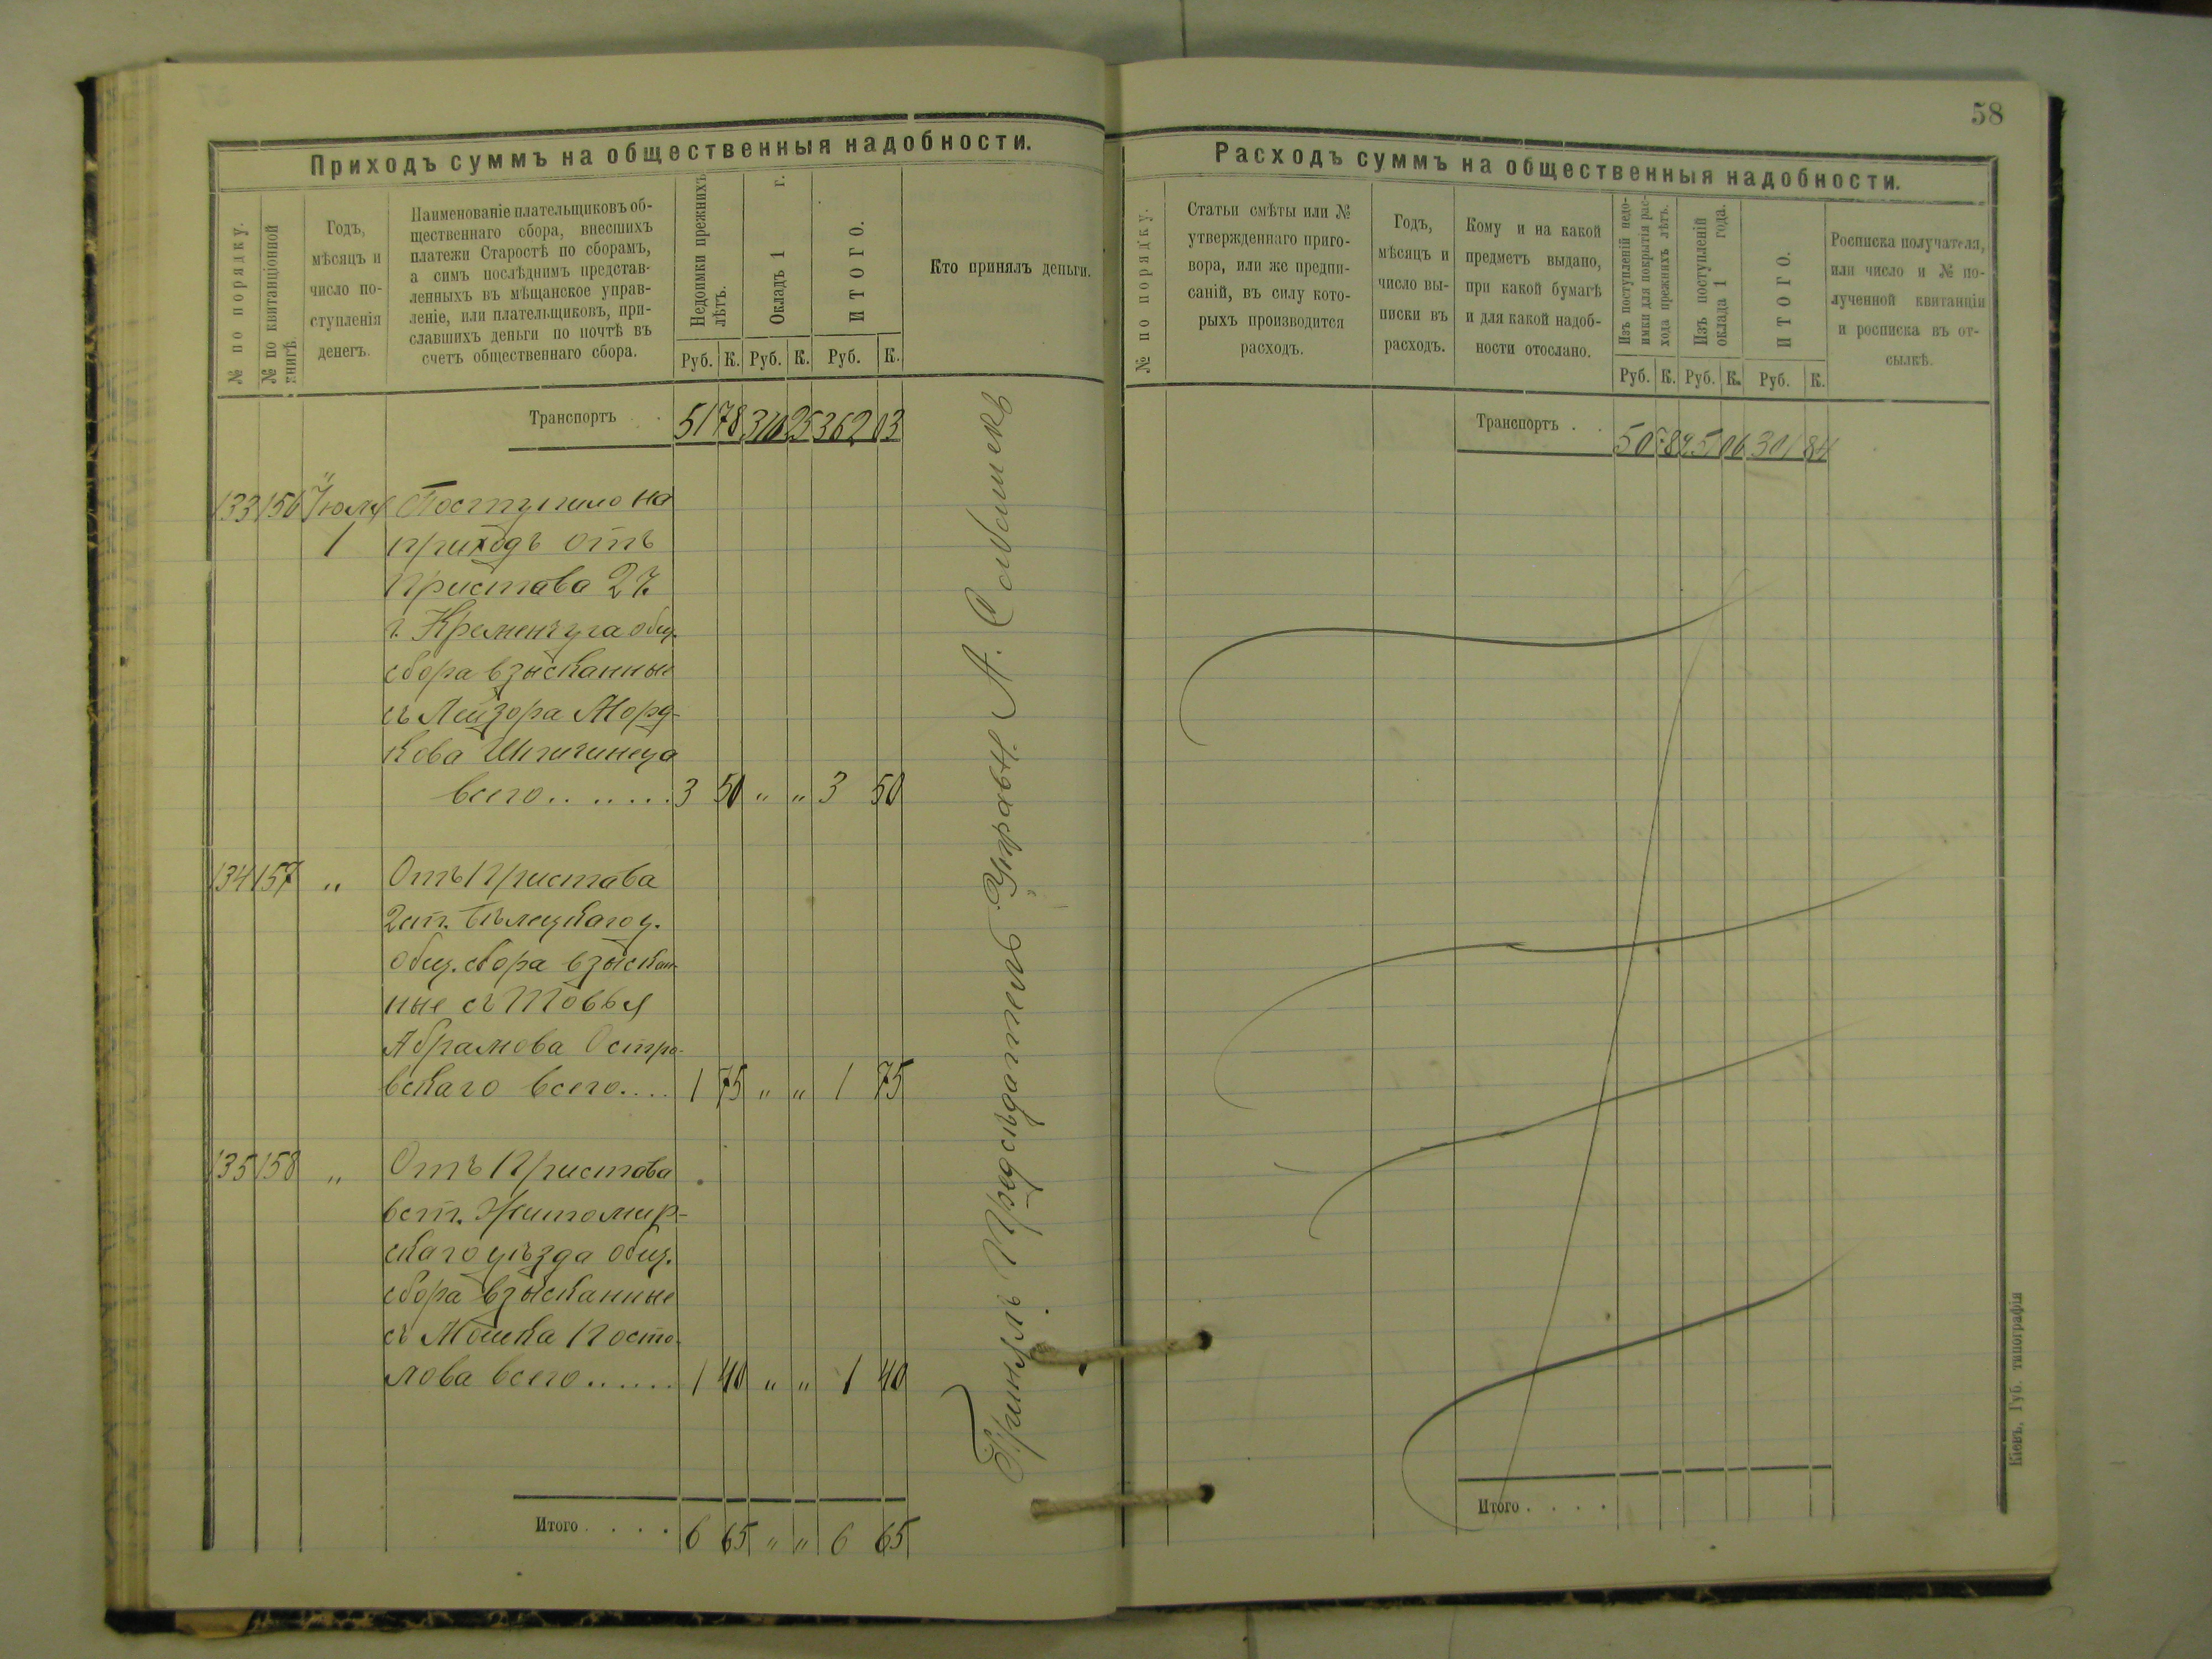 58
Приходъ суммъ на общественныя надобности.
№ по порядку.
№ по квитанціонной
книгѣ.
Годъ,
мѣсяцъ и
число по-
ступленія
денегъ.
Наименованіе плательщиковъ об-
щественнаго сбора, внесшихъ
платежи Старостѣ по сборамъ,
а симъ послѣднимъ представ-
ленныхъ въ мѣщанское управ-
леніе, или плательщиковъ, при-
славшихъ деньги по почтѣ въ
счетъ общественнаго сбора.
Недоимки прежнихъ
лѣтъ.
Окладъ 1 г.
ИТОГО.
Кто принялъ деньги.
Руб. К. Руб. К. Руб. К.
Транспортъ . . 51 78 310 25 362 03
133 156 Іюля Поступило на
1 приходъ отъ
Пристава 2 ч.
г. Кременчуга общ.
сбора взысканные
съ Лейзора Морд-
кова
всего....... 3 50 " " 3 50
134 157 " Отъ Пристава
2 ст. Бѣлецкаго у.
общ. сбора взыскан-
ные съ Товья
Абрамова Остро-
вскаго всего.... 1 75 " " 1 75
135 158 " Отъ Пристава
6 ст. Житомир-
скаго уѣзда общ.
сбора взысканные
съ Мошка Посто-
лова всего...... 1 40 " " 1 40
Итого . . . . 6 65 " " 6 65
Принялъ Предсѣдатель Управы. А.
Расходъ суммъ на общественныя надобности.
№ по порядку.
Статьи смѣты или №
утвержденнаго приго-
вора, или же предпи-
саній, въ силу кото-
рыхъ производится
расходъ.
Годъ,
мѣсяцъ и
число вы-
писки въ
расходъ.
Кому и на какой
предметъ выдано,
при какой бумагѣ
и для какой надоб-
ности отослано.
Изъ поступленій недо-
имки для покрытія рас-
хода прежнихъ лѣтъ.
Изъ поступленій
оклада 1 года.
ИТОГО.
Росписка получателя,
или число и № по-
лученной квитанціи
и росписка въ от-
сылкѣ.
Руб. К. Руб. К. Руб. К.
Транспортъ . . 301 84
Итого . . . .
Кіевъ, Губ. типографія